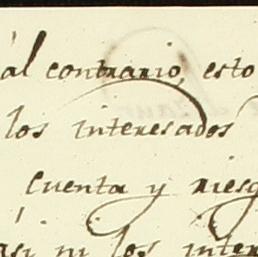 al contrario, esto
los interesados
cuenta y riesg
asi ni los inter